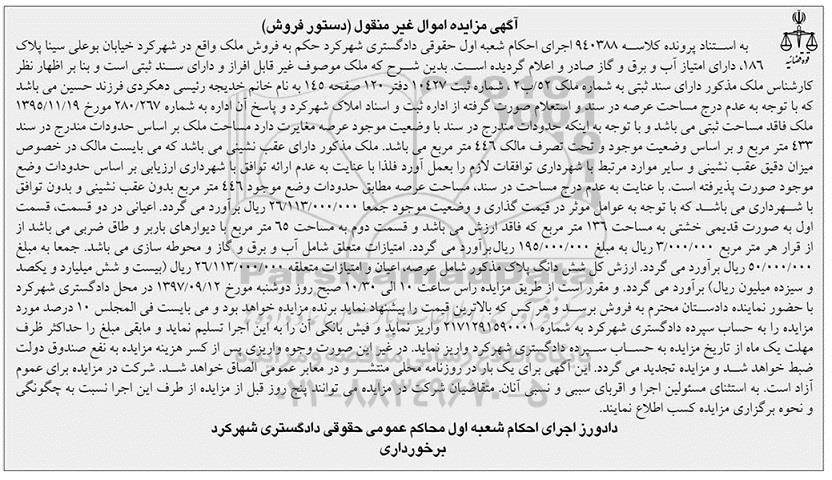 آگهی مزایده اموال غیر منقول (دستور فروش)
به استناد پرونده کلاسه ۹۴۰۳۸۸ اجرای احکام شعبه اول حقوقی دادگستری شهرکرد حکم به فروش ملک واقع در شهرکرد خیابان بوعلی سینا پلاک
۱۸۶، دارای امتیاز آب و برق و گاز صادر و اعلام گردیده است. بدین شرح که ملک موصوف غیر قابل افراز و دارای سند ثبتی است و بنا بر اظهار نظر
کارشناس ملک مذکور دارای سند ثبتی به شماره ملک ۵۲/ب۲ ، شماره ثبت ۱۰۴۲۷ دفتر ۱۲۰ صفحه ۱۴۵ به نام خانم خدیجه رئیسی دهکردی فرزند حسین می باشد
که با توجه به عدم درج مساحت عرصه در سند و استعلام صورت گرفته از اداره ثبت و اسناد املاک شهرکرد و پاسخ آن اداره به شماره ۲۸۰/۲۶۷ مورخ ۱۳۹۵/۱۱/۱۹
ملک فاقد مساحت ثبتی می باشد و با توجه به اینکه حدودات مندرج در سند با وضعیت موجود عرصه مغایرت دارد مساحت ملک بر اساس حدودات مندرج در سند
۴۳۳ متر مربع و بر اساس وضعیت موجود و تحت تصرف مالک ۴۴۶ متر مربع می باشد. ملک مذکور دارای عقب نشینی می باشد که می بایست مالک در خصوص
میزان دقیق عقب نشینی و سایر موارد مرتبط با شهرداری توافقات لازم را بعمل آورد فلذا با عنایت به عدم ارائه توافق با شهرداری ارزیابی بر اساس حدودات وضع
موجود صورت پذیرفته است. با عنایت به عدم درج مساحت در سند، مساحت عرصه مطابق حدودات وضع موجود ۴۴۶ متر مربع بدون عقب نشینی و بدون توافق
با شهرداری می باشد که با توجه به عوامل موثر در قیمت گذاری و وضعیت موجود جمعا ۲۶/۱۱۳/۰۰۰/۰۰۰ ریال برآورد می گردد. اعیانی در دو قسمت، قسمت
اول به صورت قدیمی خشتی به مساحت ۱۳۶ متر مربع که فاقد ارزش می باشد و قسمت دوم به مساحت ۶۵ متر مربع با دیوارهای باربر و طاق ضربی می باشد از
از قرار هر متر مربع ۳/۰۰۰/۰۰۰ ریال به مبلغ ۱۹۵/۰۰۰/۰۰۰ ریال برآورد می گردد. امتیازات متعلق شامل آب و برق و گاز و محوطه سازی می باشد. جمعا به مبلغ
۵۰/۰۰۰/۰۰۰ ریال برآورد می گردد. ارزش کل شش دانگ پلاک مذکور شامل عرصه، اعیان و امتیازات متعلقه ۲۶/۱۱۳/۰۰۰/۰۰۰ ریال (بیست و شش میلیارد و یکصد
و سیزده میلیون ریال) برآورد می گردد. و مقرر است از طریق مزایده راس ساعت ۱۰ الی ۱۰/۳۰ صبح روز دوشنبه مورخ ۱۳۹۷/۰۹/۱۲ در محل دادگستری شهرکرد
با حضور نماینده دادستان محترم به فروش برسد و هر کس که بالاترین قیمت را پیشنهاد نماید برنده مزایده خواهد بود و می بایست فی المجلس ۱۰ درصد مورد
مزایده را به حساب سپرده دادگستری شهرکرد به شماره ۲۱۷۱۲۹۱۵۹۰۰۰۱ واریز نماید و فیش بانکی آن را به این اجرا تسلیم نماید و مابقی مبلغ را حداکثر ظرف
مهلت یک ماه از تاریخ مزایده به حساب سپرده دادگستری شهرکرد واریز نماید. در غیر این صورت وجوه واریزی پس از کسر هزینه مزایده به نفع صندوق دولت
ضبط خواهد شد و مزایده تجدید می گردد. این آگهی برای یک بار در روزنامه محلی منتشر و در معابر عمومی الصاق خواهد شد. شرکت در مزایده برای عموم
آزاد است. به استثنای مسئولین اجرا و اقربای سببی و نسبی آنان. متقاضیان شرکت در مزایده می توانند پنج روز قبل از مزایده از طرف این اجرا نسبت به چگونگی
و نحوه برگزاری مزایده کسب اطلاع نمایند.
دادورز اجرای احکام شعبه اول محاکم عمومی حقوقی دادگستری شهرکرد
برخورداری
قوه قضائیه
ParsNamadData
پایگاه اطلاع رسانی مناقصه و مزایده
۰۲۱-۸۸۳۴۹۶۷۰-۵